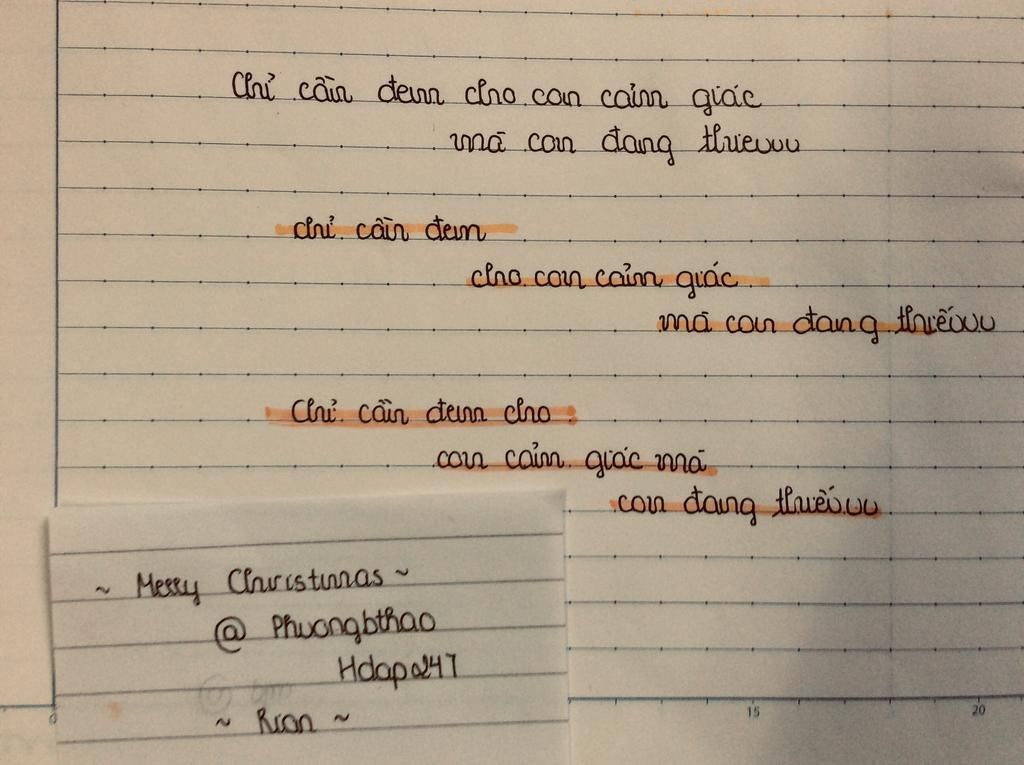 Chỉ cần đem cho con cảm giác
mà con đang thieuuu
chỉ cần đem
cho con cảm giác
mà con đang thiếuuu
Chỉ cần đem cho
con cảm giác mà
con đang thiếuuu
~ Merry Christmas ~
@ Phuongbthao
Hdapo247
~ Rion ~
15 20